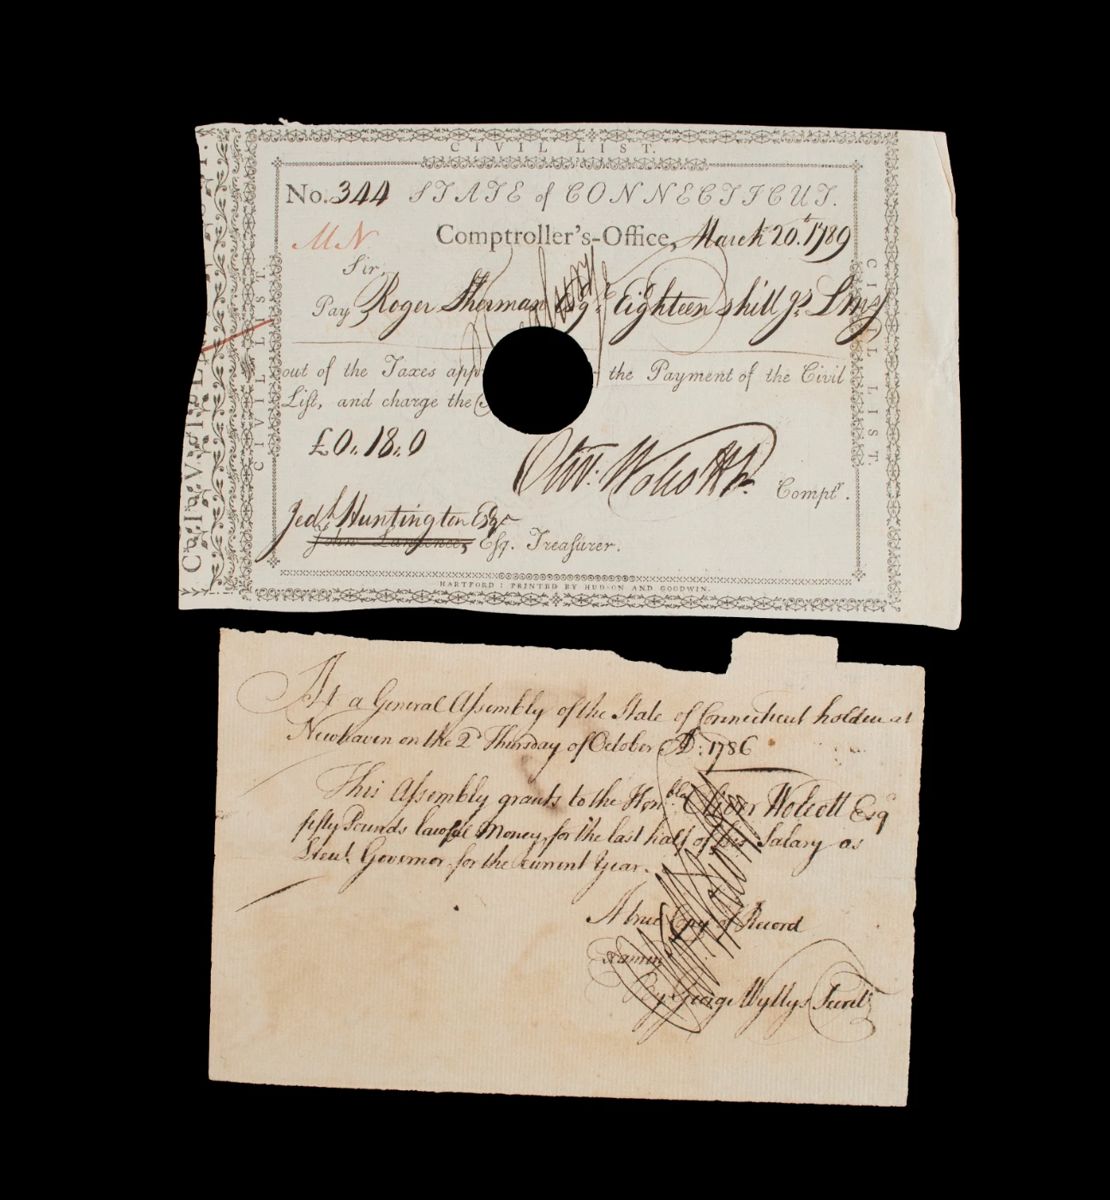 CIVIL LIST.
No. 344 STATE of CONNECTICUT.
MN Comptroller's-Office, March 20.t 1789
Sir,
Pay Roger Sherman Esqr Eighteen shillgs. L my
out of the Taxes app the Payment of the Civil
List, and charge the
£0,, 18,, 0
Olivr. Wolcott Jr. Comptr.
Jedh Huntington Esqr
John Lawrence, Esq. Treasurer.
HARTFORD: PRINTED BY HUDSON AND GOODWIN.
CIVIL LIST.
CIVIL LIST.
At a General Assembly of the State of Connecticut holden at
Newhaven on the 2d Thursday of October AD: 1786
This Assembly grants to the Honble Oliver Wolcott Esqr
fifty Pounds lawful Money, for the last half of his Salary as
Lieut. Governor, for the current Year.
A true Copy of Record
Examind
By George Wyllys Secret